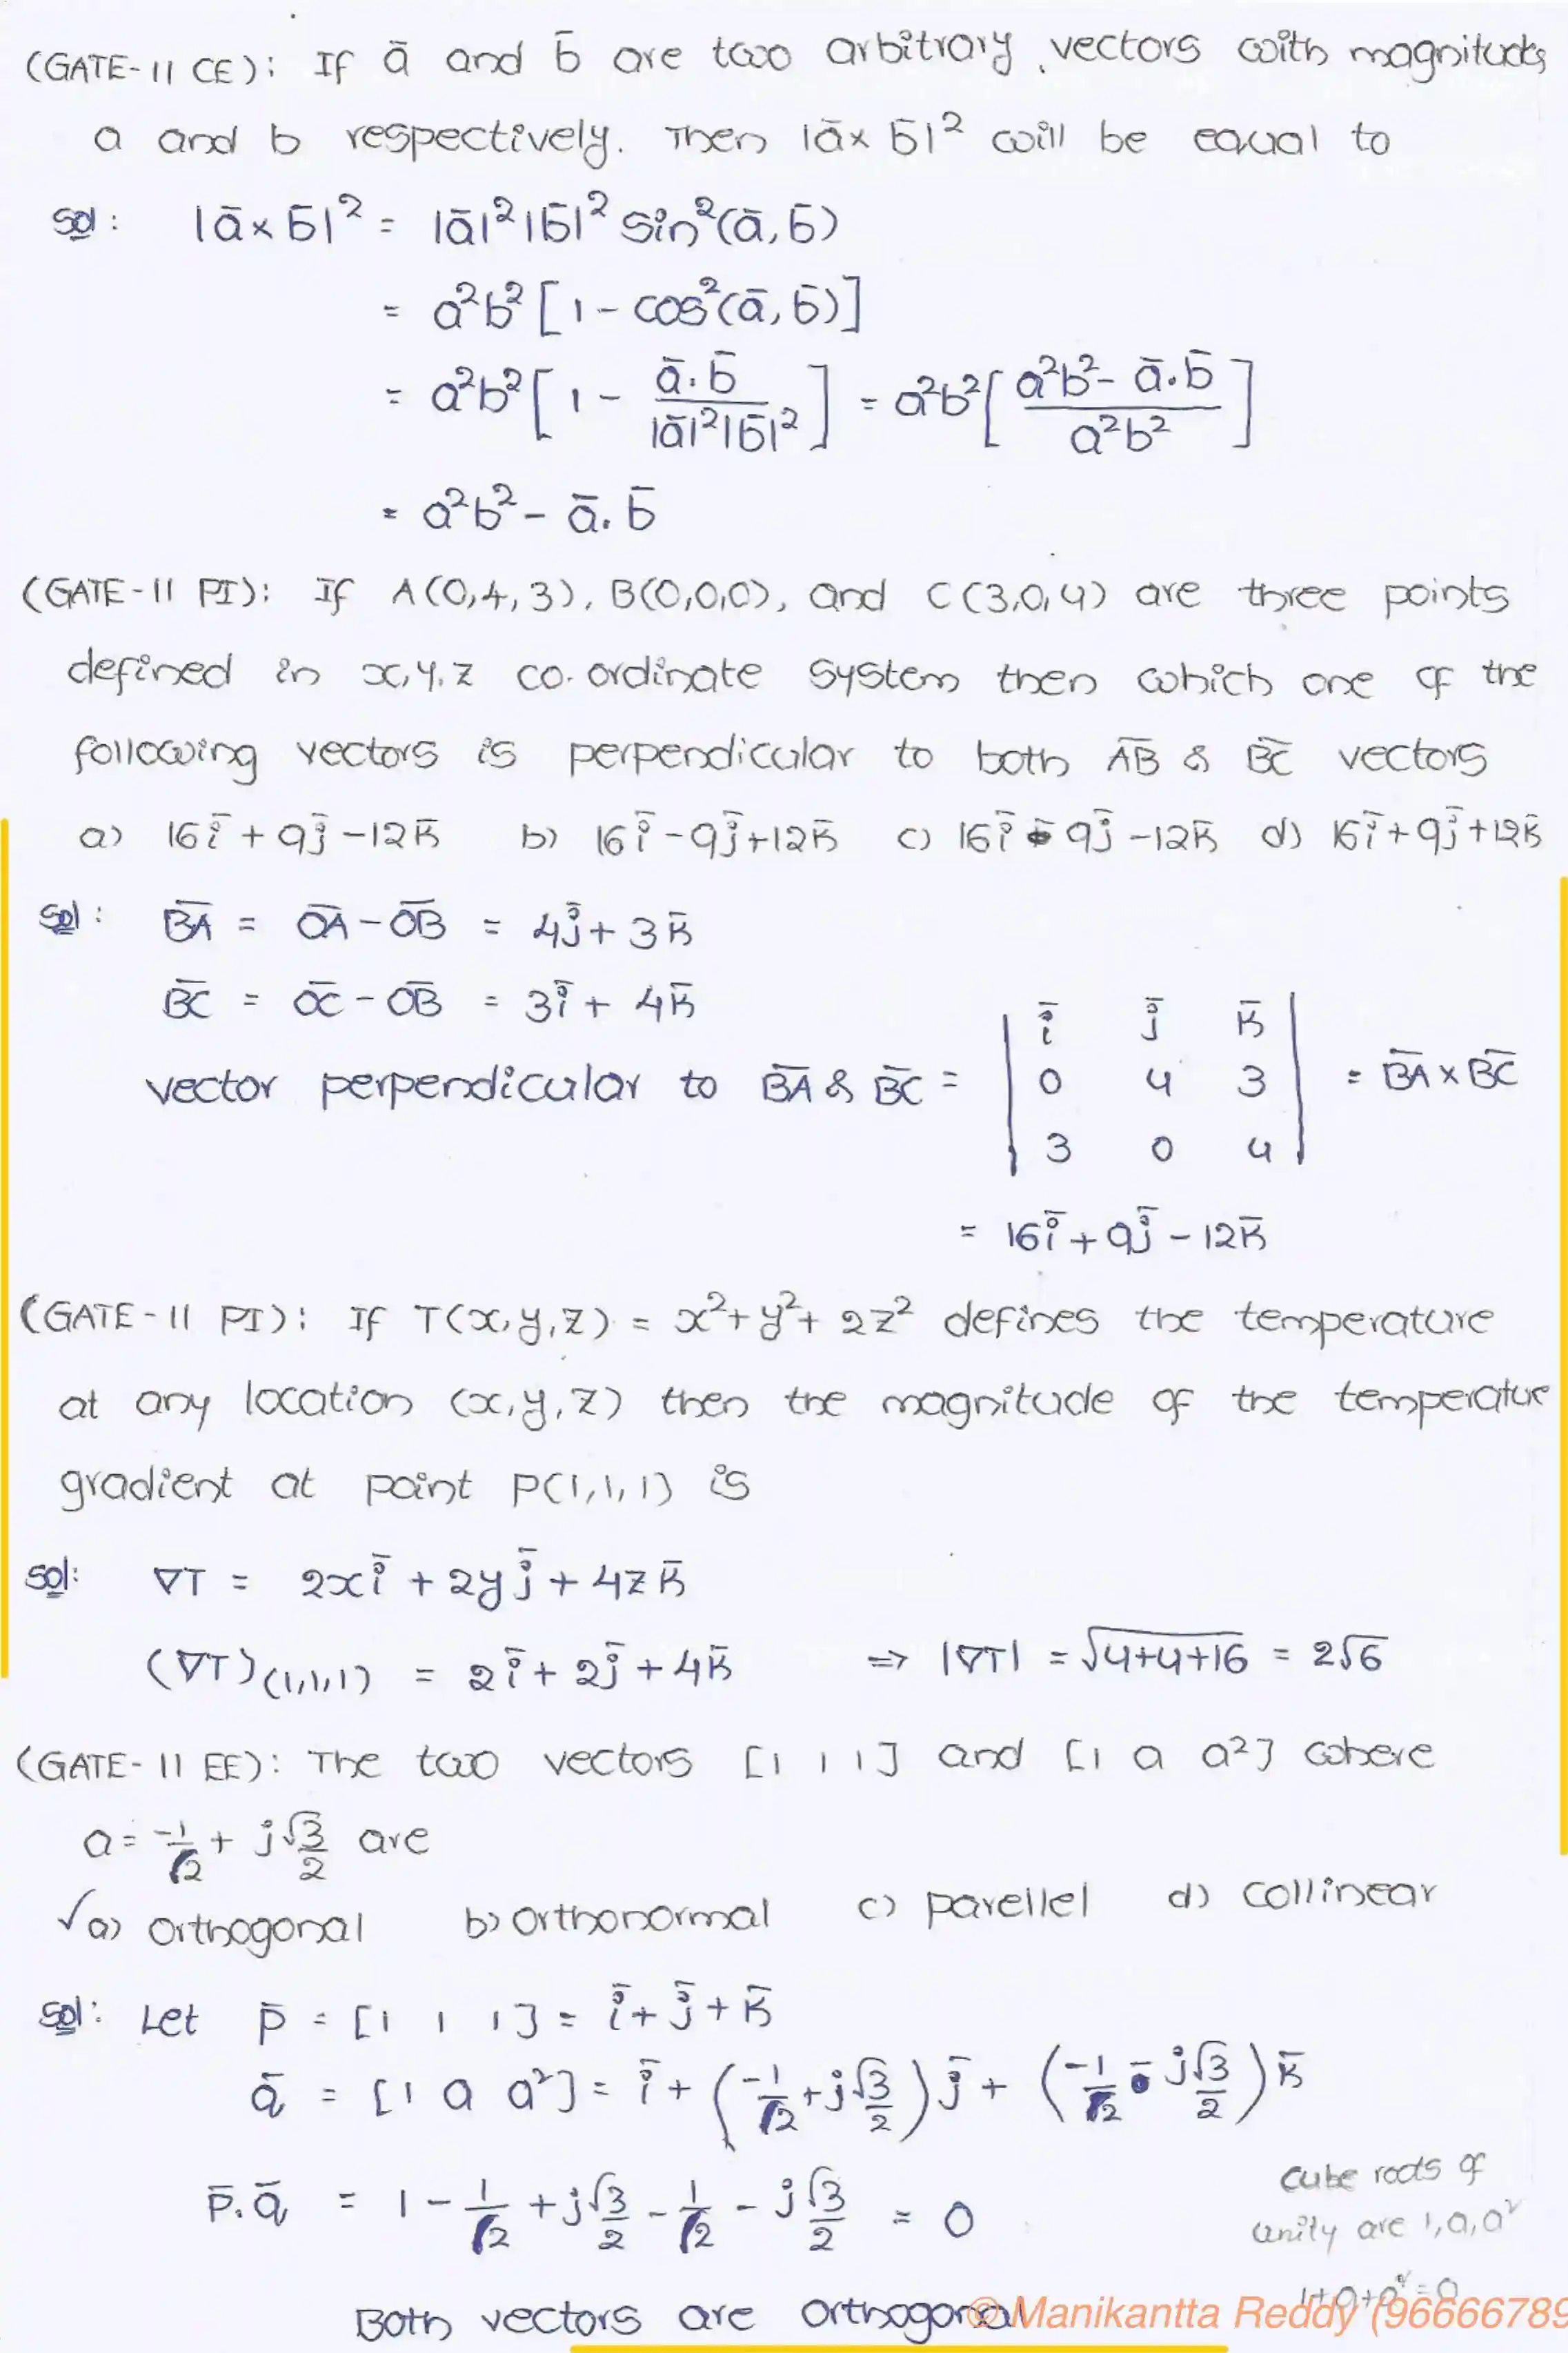 (GATE-11 CE): If ā and b̄ are two arbitrary vectors with magnitudes
a and b respectively. Then |ā× b̄|² will be equal to
Sol: |ā×b̄|² = |ā|²|b̄|² sin²(ā,b̄)
= a²b²[1 - cos²(ā,b̄)]
= a²b²[1 - ā.b̄/|ā|²|b̄|²] = a²b²[a²b² - ā.b̄/a²b²]
= a²b² - ā.b̄
(GATE-11 PI): If A(0,4,3), B(0,0,0), and C(3,0,4) are three points
defined in x,y,z co-ordinate system then which one of the
following vectors is perpendicular to both A̅B̅ & B̅C̅ vectors
a) 16ī + 9j̄ -12k̄ b) 16ī -9j̄+12k̄ c) 16ī - 9j̄ -12k̄ d) 16ī+9j̄+12k̄
Sol: B̅A̅ = O̅A̅ - O̅B̅ = 4j̄ + 3k̄
B̅C̅ = O̅C̅ - O̅B̅ = 3ī + 4k̄
vector perpendicular to B̅A̅ & B̅C̅ = | ī j̄ k̄ | 0 4 3 | 3 0 4 | = B̅A̅ × B̅C̅
= 16ī + 9j̄ - 12k̄
(GATE-11 PI): If T(x,y,z) = x²+y²+2z² defines the temperature
at any location (x,y,z) then the magnitude of the temperatue
gradient at point P(1,1,1) is
Sol: ∇T = 2xī + 2yj̄ + 4zk̄
(∇T)(1,1,1) = 2ī + 2j̄ + 4k̄ ⇒ |∇T| = √4+4+16 = 2√6
(GATE-11 EE): The two vectors [1 1 1] and [1 a a²] where
a = -1/2 + j√3/2 are
✓a) orthogonal b) orthonormal c) parellel d) collinear
Sol: Let p̄ = [1 1 1] = ī + j̄ + k̄
q̄ = [1 a a²] = ī + (-1/2 + j√3/2)j̄ + (-1/2 - j√3/2)k̄
p̄.q̄ = 1 - 1/2 + j√3/2 - 1/2 - j√3/2 = 0
cube roots of
unity are 1,a,a²
1+a+a²=0
Both vectors are orthogonal
© Manikantta Reddy (96666789